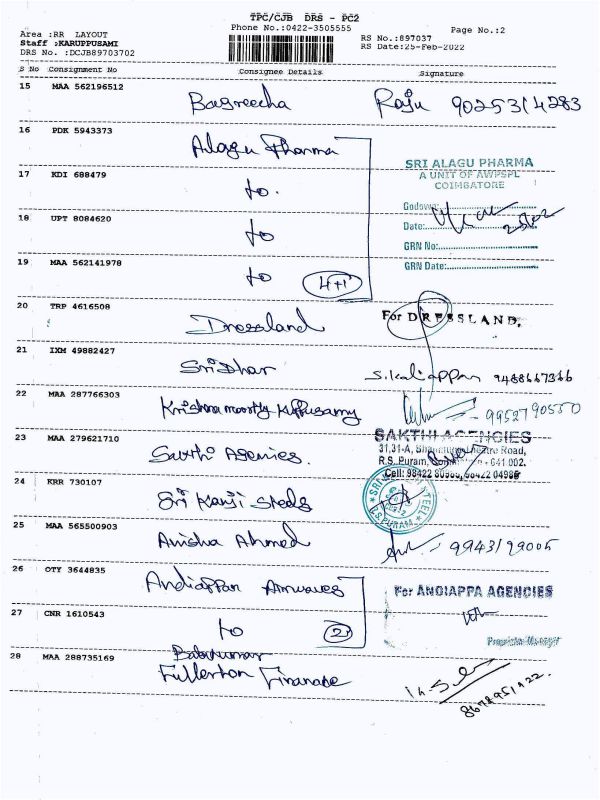 TPC/CJB DRS - PC2
Phone No.:0422-3505555
Page No.:2
Area :RR LAYOUT
Staff :KARUPPUSAMI
RS No.:897037
DRS No. :DCJB89703702
RS Date:25-Feb-2022
S No Consignment No Consignee Details Signature
15 MAA 562196512 Bagreecha Raju 9025314283
16 PDK 5943373 Alagu Pharma
SRI ALAGU PHARMA
A UNIT OF AWPSPL
COIMBATORE
17 KDI 688479 to.
Godown:
18 UPT 8084620 to
Date:
GRN No:
19 MAA 562141978 to 4+1
GRN Date:
20 TRP 4616508 Dressland For DRESSLAND,
21 IXM 49882427 SriDhar S.Kaliappan 9488667366
22 MAA 287766303 Krishna moorthy Kuppusamy 9952790550
23 MAA 279621710 Sakthi Agencies.
SAKTHI AGENCIES
31,31-A, Theatre Road,
R.S. Puram, - 641 002.
Cell: 98422
24 KRR 730107 Sri Kanji Steels
R.S.PURAM
25 MAA 565500903 Anisha Ahmed 9943199005
26 OTY 3644835 Andiappan
For ANGIAPPA AGENCIES
27 CNR 1610543 to 2
28 MAA 288735169 Babukumar
Fullerton